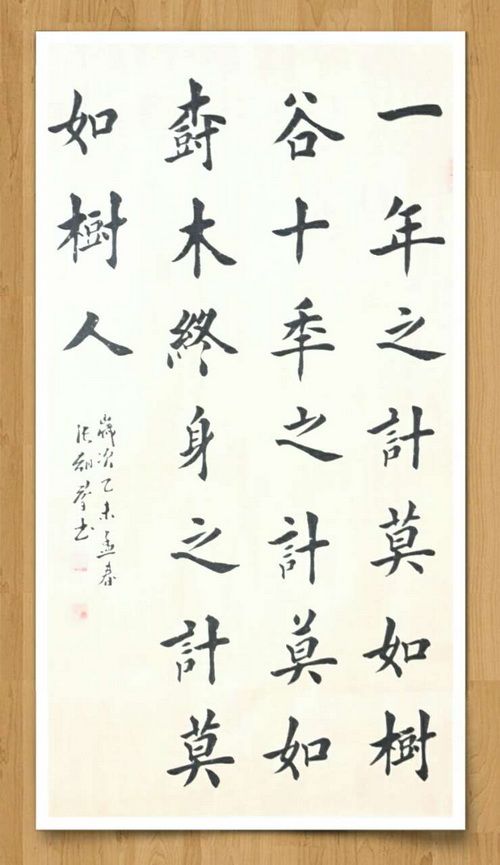 一年之計莫如樹
谷十秊之計莫如
樹木終身之計莫
如樹人
歲次乙未孟春